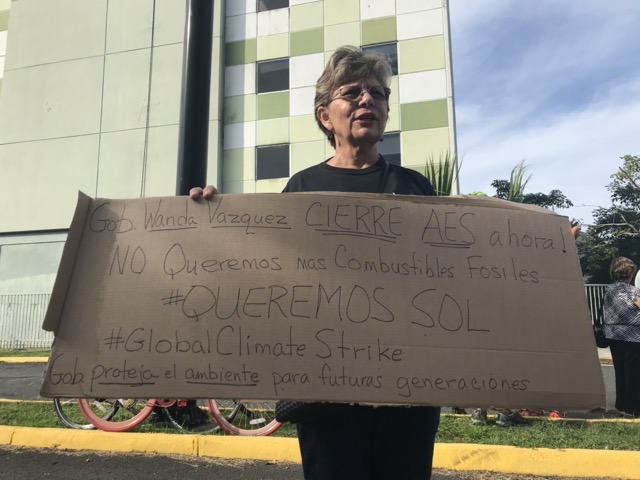 Gob. Wanda Vazquez CIERRE AES ahora!
NO Queremos mas Combustibles Fosiles
#QUEREMOS SOL
#GlobalClimate Strike
Gob. proteja el ambiente para futuras generaciones